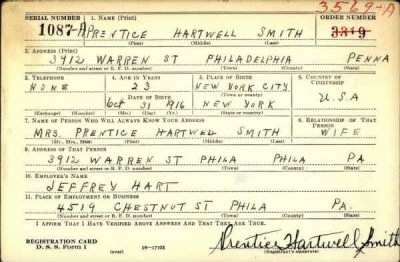 3569-A
SERIAL NUMBER 1. NAME (Print) ORDER NUMBER
1087 A PRENTICE HARTWELL SMITH 3319
(First) (Middle) (Last)
2. ADDRESS (Print)
3912 WARREN ST PHILADELPHIA PENNA
(Number and street or R. F. D. number) (Town) (County) (State)
3. TELEPHONE 4. AGE IN YEARS 5. PLACE OF BIRTH 6. COUNTRY OF CITIZENSHIP
NONE 23 NEW YORK CITY
DATE OF BIRTH (Town or county)
Oct 31 1916 NEW YORK U.S.A
(Mo.) (Day) (Yr.) (State or country)
7. NAME OF PERSON WHO WILL ALWAYS KNOW YOUR ADDRESS 8. RELATIONSHIP OF THAT PERSON
MRS. PRENTICE HARTWELL SMITH WIFE
(Mr., Mrs., Miss) (First) (Middle) (Last)
9. ADDRESS OF THAT PERSON
3912 WARREN ST PHILA PHILA PA.
(Number and street or R. F. D. number) (Town) (County) (State)
10. EMPLOYER'S NAME
JEFFREY HART
11. PLACE OF EMPLOYMENT OR BUSINESS
4519 CHESTNUT ST PHILA PA.
(Number and street or R. F. D. number) (Town) (County) (State)
I AFFIRM THAT I HAVE VERIFIED ABOVE ANSWERS AND THAT THEY ARE TRUE.
REGISTRATION CARD
D. S. S. Form 1 (over) 16-17105 Prentice Hartwell Smith